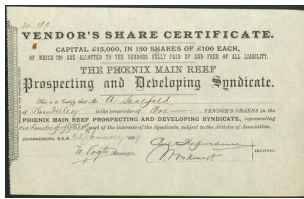 VENDOR'S SHARE CERTIFICATE.
CAPITAL £15,000, IN 150 SHARES OF £100 EACH,
OF WHICH 120 ARE ALLOTTED TO THE VENDORS FULLY PAID UP AND FREE OF ALL LIABILITY.
THE PHŒNIX MAIN REEF
Prospecting and Developing Syndicate.
This is to Certify that Mr A
of Kimberley is the proprietor of One VENDOR'S SHARES in the
PHŒNIX MAIN REEF PROSPECTING AND DEVELOPING SYNDICATE, representing
one hundred fiftieth part of the interests of the Syndicate, subject to the Articles of Association.
JOHANNESBURG, Z.A.R. January 1889
Manager.
TRUSTEES.